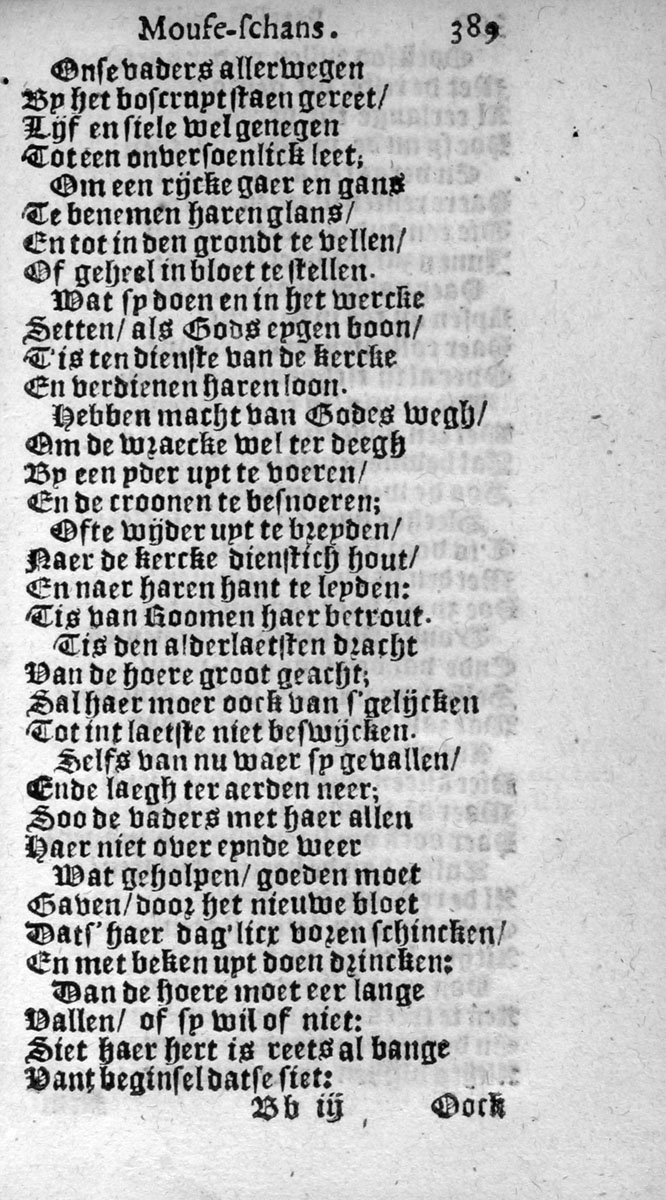 Mouse-schans. 389
Onse vaders allerwegen
By het boscruyt staen gereet/
Lijf en siele wel genegen
Tot een onversoenlick leet;
Om een rijcke gaer en gans
Te benemen haren glans/
En tot in den grondt te vellen/
Of geheel in bloet te stellen.
Wat sy doen en in het wercke
Setten/ als Gods eygen boon/
T'is ten dienste van de kercke
En verdienen haren loon.
Hebben macht van Godes wegh/
Om de wraecke wel ter deegh
By een yder uyt te voeren/
En de croonen te besnoeren;
Ofte wijder uyt te breyden/
Naer de kercke dienstich hout/
En naer haren hant te leyden:
Tis van Roomen haer betrout.
Tis den alderlaetsten dracht
Van de hoere groot geacht;
Sal haer moer oock van s'gelijcken
Tot int laetste niet beswijcken.
Selfs van nu waer sy gevallen/
Ende laegh ter aerden neer;
Soo de vaders met haer allen
Haer niet over eynde weer
Wat geholpen/ goeden moet
Gaven/ door het nieuwe bloet
Dats' haer dag'licx voren schincken/
En met beken uyt doen drincken:
Dan de hoere moet eer lange
Vallen/ of sy wil of niet:
Siet haer hert is reets al bange
Vant beginsel datse siet:
Bb iij Oock